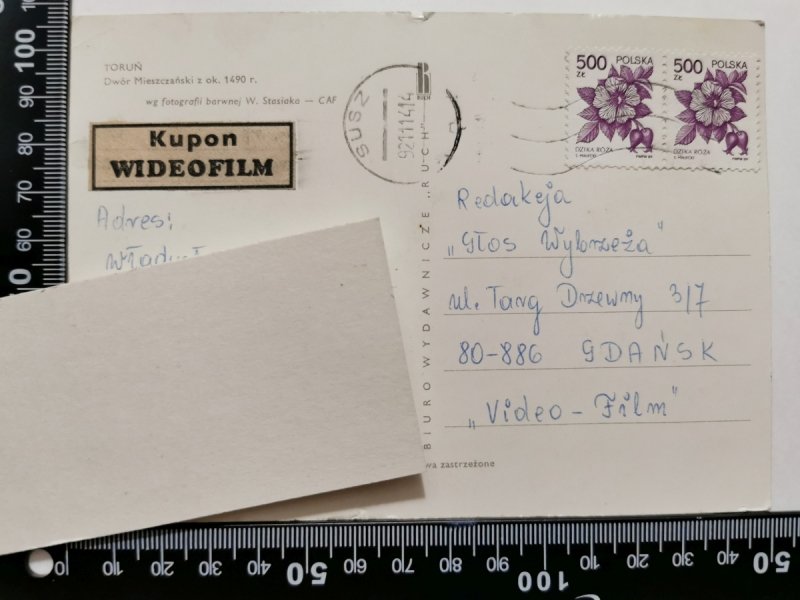 TORUŃ
Dwór Mieszczański z ok. 1490 r.
wg fotografii barwnej W. Stasiaka — CAF
Kupon
WIDEOFILM
Adres:
BIURO WYDAWNICZE „RUCH”
RUCH
SUSZ
500 ZŁ POLSKA
DZIKA RÓŻA
500 ZŁ POLSKA
DZIKA RÓŻA
Redakcja
„Głos Wybrzeża”
ul. Targ Drzewny 3/7
80-886 GDAŃSK
„Video - Film”
wa zastrzeżone
100
90
80
70
60
0 10 20 30 40 50 60 70 80 90 100 10 20 30 40